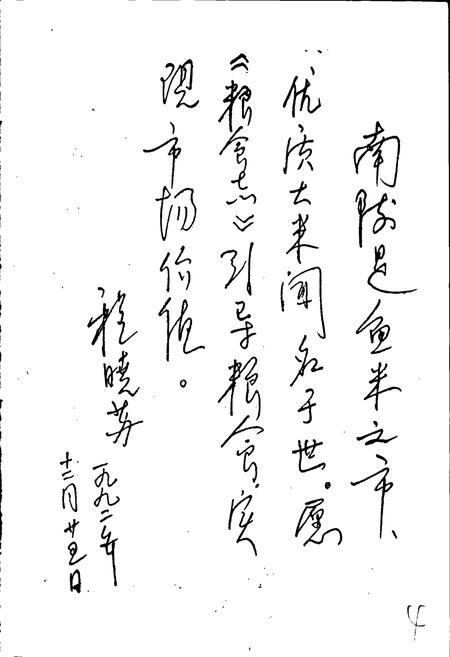 南陵是鱼米之市、
优质大米闻名于世。愿
《粮食志》引导粮食实
现市场价值。
程晓苏
一九九二年
十二月廿五日
4